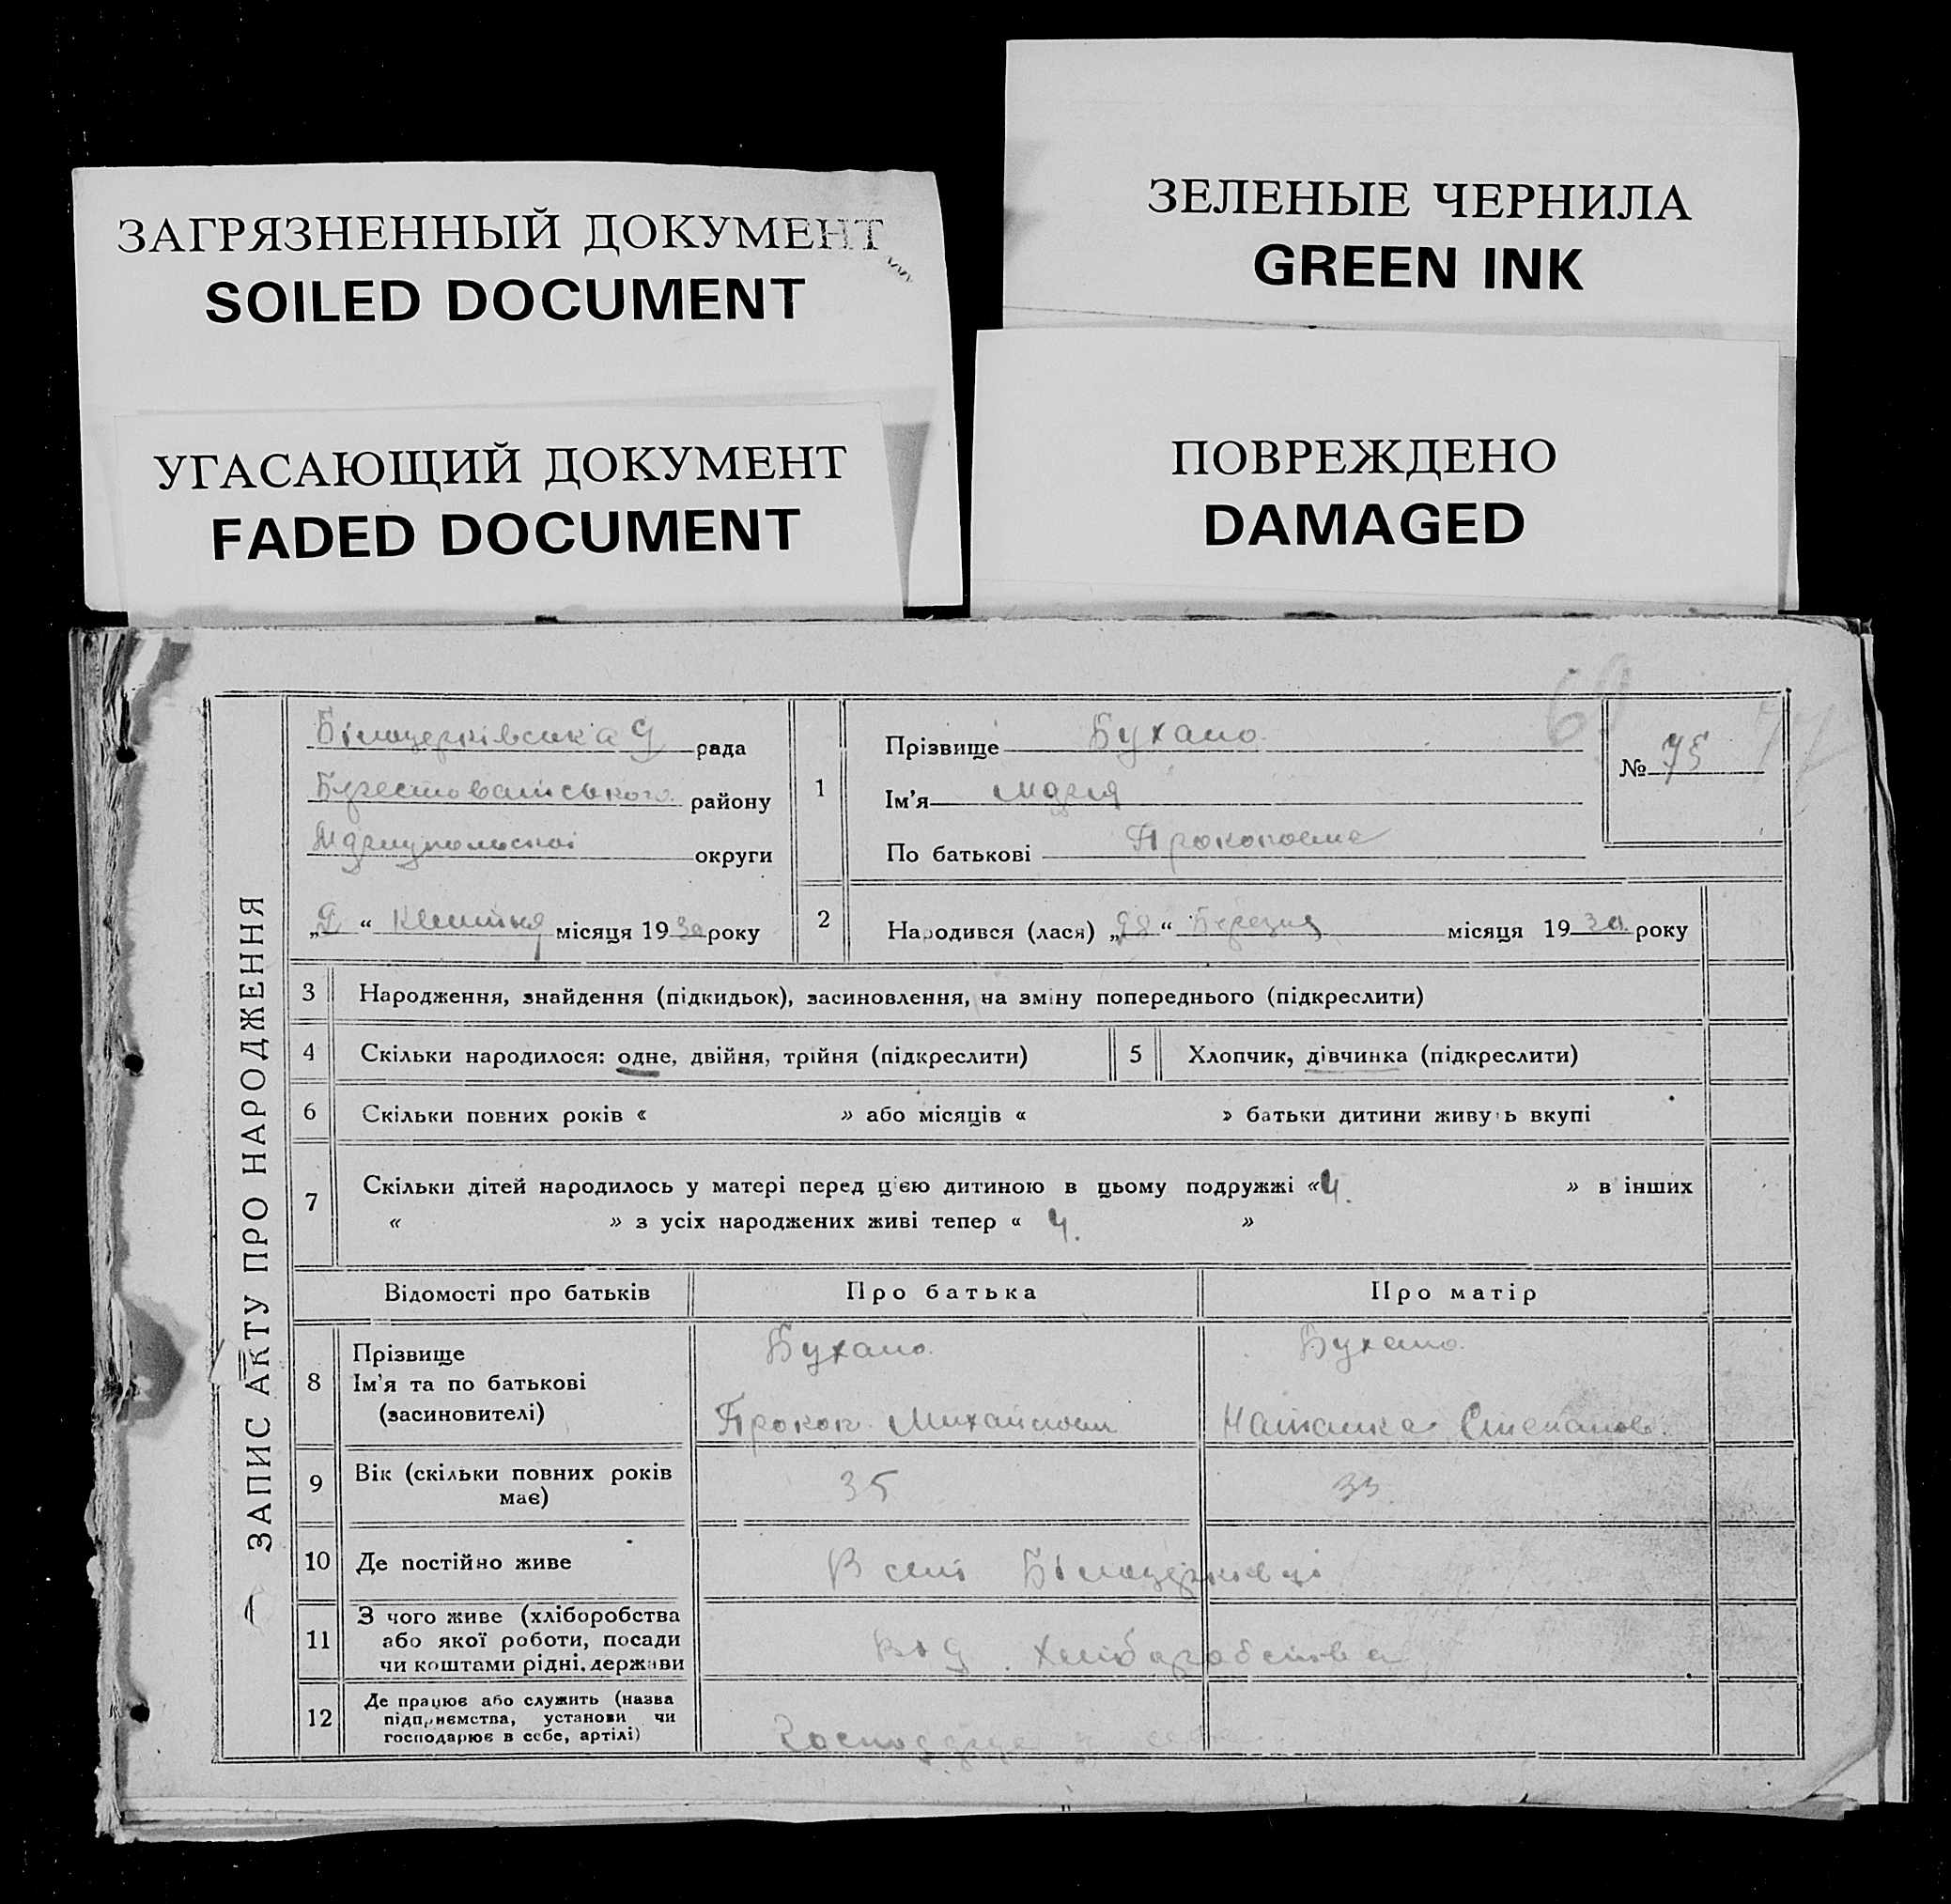 ЗАГРЯЗНЕННЫЙ ДОКУМЕНТ
SOILED DOCUMENT
УГАСАЮЩИЙ ДОКУМЕНТ
FADED DOCUMENT
ЗЕЛЕНЫЕ ЧЕРНИЛА
GREEN INK
ПОВРЕЖДЕНО
DAMAGED
69
ЗАПИС АКТУ ПРО НАРОДЖЕННЯ
Білоцерківська рада
району
округи
„ “ Квітня місяця 1930 року
1
Прізвище Бухало
Ім'я Марія
По батькові
№ 75
2
Народився (лася) „28“ Березня місяця 1930 року
3 Народження, знайдення (підкидьок), засиновлення, на зміну попереднього (підкреслити)
4 Скільки народилося: одне, двійня, трійня (підкреслити)
5 Хлопчик, дівчинка (підкреслити)
6 Скільки повних років « » або місяців « » батьки дитини живуть вкупі
7 Скільки дітей народилось у матері перед цією дитиною в цьому подружжі «4. » в інших
« » з усіх народжених живі тепер « 4. »
Відомості про батьків Про батька Про матір
8 Прізвище Бухало Бухало
Ім'я та по батькові
(засиновителі) Прокоп Михайлов Наталка Степанов.
9 Вік (скільки повних років
має) 35 33
10 Де постійно живе В селі Білоцерківці
11 З чого живе (хліборобства
або якої роботи, посади
чи коштами рідні, держави Від хліборобства
12 Де працює або служить (назва
підприємства, установи чи
господарює в себе, артілі)